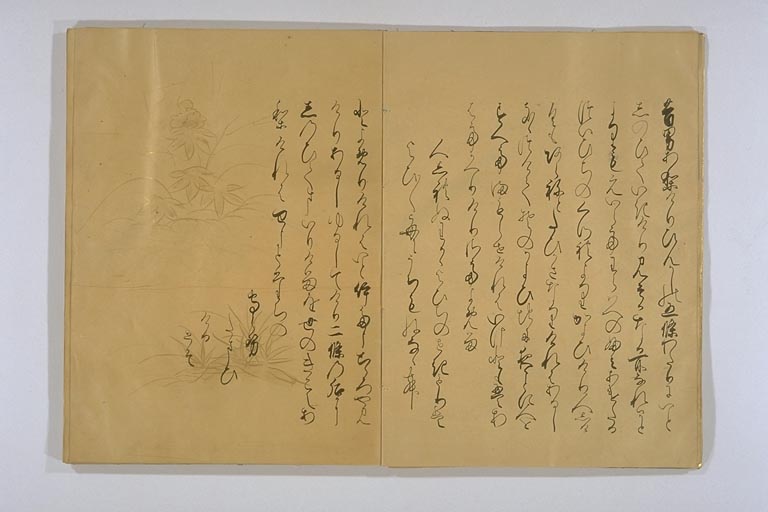 昔男有けりひんかしの五條わたりにいと
しのひていきけりみそかなる所なれはかと
よりもえいらてわらはへのふみあけたる
ついひちのくつれよりかよひけり人しけ
くもあらねとたひかさなりけれはあるし
きゝつけてそのかよひ地に夜ことに人を
すへてまもらせけれはいけともえあ
はてかへりけりさてよめる
人しれぬわかかよひちのせきもりは
よひ〳〵ことにうちもねなゝむ
とよめりけれはいといたう心やみ
けりあるしゆるしてけり二條の后に
しのひてまいりけるを世のきこえあ
りけれはせうとたちの
まもらせ
たまひ
ける
とそ